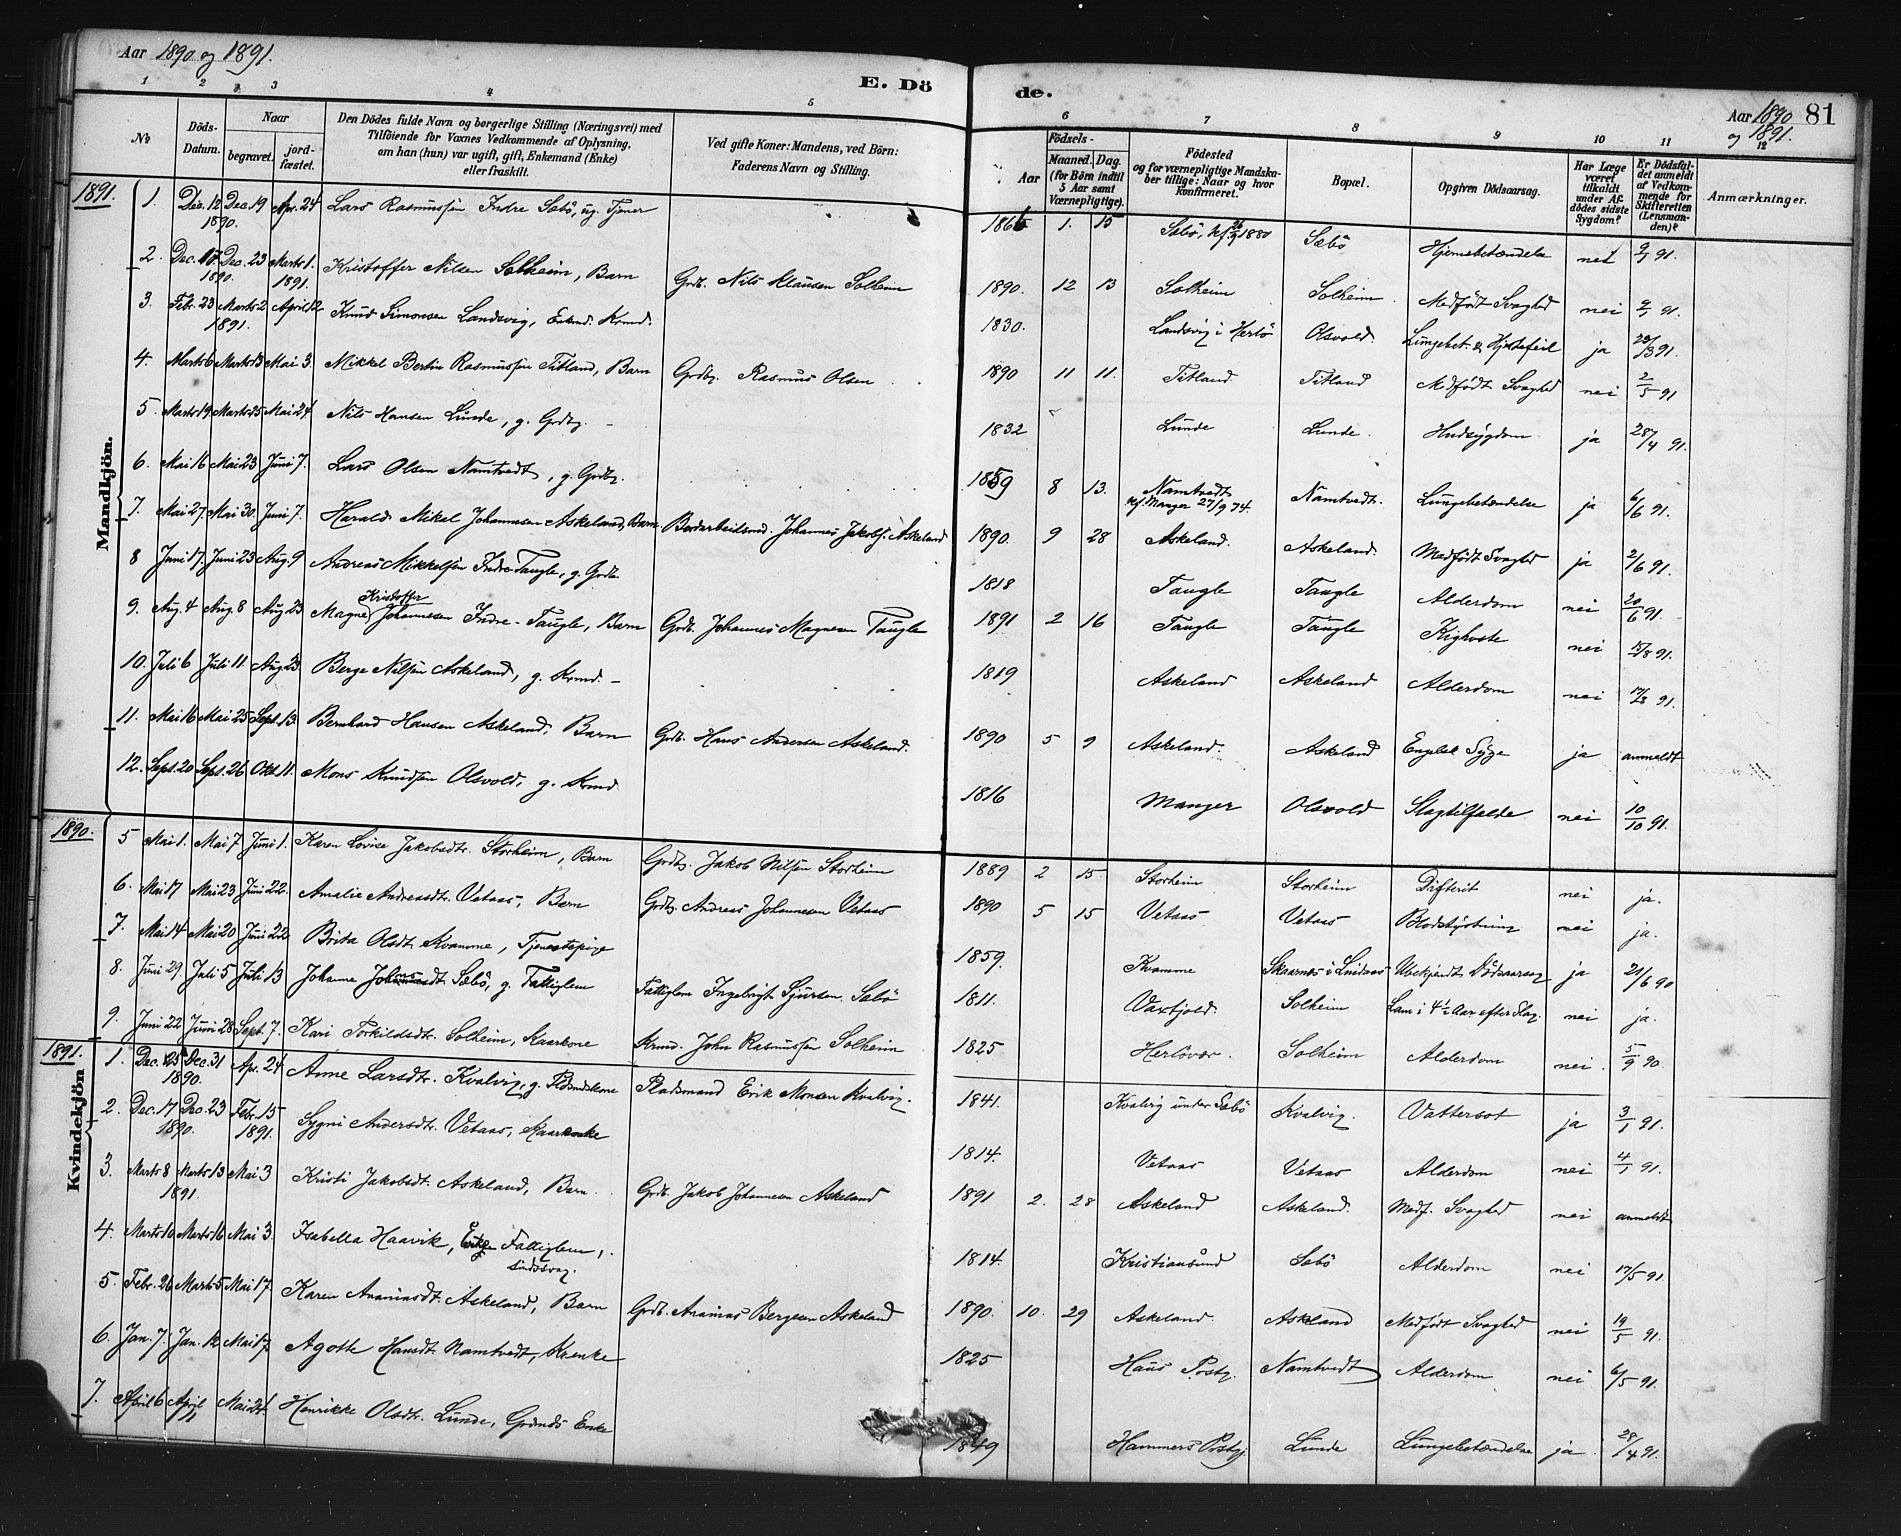 Aar 1890 og 1891.
E. Dö de.
Aar 1890 og 1891. 81
1 2 3 4 5 6 7 8 9 10 11 12
No
Döds-Datum.
Naar
begravet.
jord-fæstet.
Den Dödes fulde Navn og borgerlige Stilling (Næringsvei) med
Tilföiende for Voxnes Vedkommende af Oplysning,
om han (hun) var ugift, gift, Enkemand (Enke)
eller fraskilt.
Ved gifte Koner: Mandens, ved Börn:
Faderens Navn og Stilling.
Födsels-
Aar
Maaned. Dag.
(for Börn indtil
5 Aar samt
Værnepligtige).
Födested
og for værnepligtige Mandska-
ber tillige: Naar og hvor
konfirmeret.
Bopæl.
Opgiven Dödsaarsag.
Har Læge
været
tilkaldt
under Af-
dödes sidste
Sygdom?
Er Dödsfal-
det anmeldt
af Vedkom-
mende for
Skifteretten
(Lensman-
den)?
Anmærkninger.
Mandkjön.
1891.
1. Dec. 12 1890. Dec. 19 Apr. 24 Lars Rasmussen Indre Sæbö, ug. Tjener 1866 1. 15 Sæbö, kf. 1880 Sæbö Hjernebetændelse nei 91.
2. Dec. 17. 1890. Dec. 23 Marts 1. 1891. Kristoffer Nilsen Solheim, Barn Grdb. Nils Klausen Solheim 1890. 12 13 Solheim Solheim Medfödt Svaghed nei 91.
3. Febr. 23 Marts 2 1891. April 12 Knud Simonsen Landsvig, Enkmd. Krmd. 1830. Landsvig i Herlö Olsvold Lungebet. & Hjertefeil ja 91.
4. Marts 6 Marts 13 Mai 3. Mikkel Bertin Rasmussen Titland, Barn Grdbr. Rasmus Olsen 1890 11 11. Titland Titland Medfödt Svaghed nei 2/5 91
5. Marts 19 Marts 25 Mai 24 Nils Hansen Lunde, g. Grdbr. 1832 Lunde Lunde. Hudsygdom ja 28/4 91.
6. Mai 16 Mai 23 Juni 7. Lars Olsen Namtvedt, g. Grdbr. 1859 8 13. Namtvedt kf. Manger 27/9 74. Namtvedt. Lungebetændelse ja 6/6 91.
7. Mai 27. Mai 30. Juni 7. Harald Mikal Johannesen Askeland, Barn Bordarbeidsmd. Johannes Jakobs. Askeland 1890. 9 28 Askeland. Askeland. Medfödt Svaghed ja 2/6 91.
8 Juni 17. Juni 23 Aug. 9 Andreas Mikkelsen Indre Taugle, g. Grdb. 1818 Taugle Taugle Alderdom nei 20/6 91.
9. Aug. 4 Aug. 8 Aug 23 Magne Kristoffer Johannesen Indre-Taugle, Barn Grdb. Johannes Magnesen Taugle 1891 2 16 Taugle Taugle Kighoste nei /8 91.
10. Juli 6 Juli 11. Aug 23. Berge Nilsen Askeland, g. Krmd. 1819 Askeland Askeland Alderdom nei 17/8 91.
11. Mai 16 Mai 25 Sept. 13. Bernhard Hansen Askeland, Barn Grdb. Hans Andersen Askeland. 1890 5 9 Askeland. Askeland Engelsk Syge ja anmeldt
12. Sept. 20 Sept. 26 Okt. 11. Mons Knudsen Olsvold, g. Krmd 1816 Manger Olsvold Slagtilfælde nei 10/10 91.
Kvindekjön
1890.
5 Mai 1. Mai 7 Juni 1. Karen Lovise Jakobsdtr. Storheim, Barn Grdbr. Jakob Nilsen Storheim 1889 2 15 Storheim Storheim Difterit nei ja.
6. Mai 17 Mai 23 Juni 22. Amalie Andreasdtr. Vetaas, Barn Grdbr. Andreas Johannesen Vetaas 1890 5 15 Vetaas Vetaas nei ja.
7. Mai 14 Mai 20 Juni 22 Brita Olsdt. Kvamme, Tjenestepige 1859. Kvamme Skaarnes i Lindaas Ubekjendt Dödsaarsag ja 21/6 90
8. Juni 29. Juli 5 Juli 13 Johanne Johannesdt Sæbö, g. Fattiglem Fattiglem Ingebrigt Sjursen Sæbö 1811. Solheim Lam i 4½ Aar efter Slag. nei ja.
9. Juni 22 Juni 28 Sept. 7. Kari Torkildsdtr. Solheim, Kaarkone Krmd. John Rasmussen Solheim 1825 Herlövær. Solheim Alderdom nei 5/9 90.
1891.
1. Dec. 25 1890. Dec. 31 Apr. 24 Anne Larsdtr. Kvalvig, g. Pladsmdskone Pladsmand Erik Monsen Kvalvig. 1841. Kvalvig under Sæbö Kvalvig. Vattersot ja 3/1 91.
2. Dec. 17 1890. Dec. 23 Febr. 15 1891. Sygni Andersdtr. Vetaas, Kaarenke 1814. Vetaas Vetaas Alderdom nei 4/1 91.
3. Marts 8 Marts 13 1891. Mai 3 Kristi Jakobsdt. Askeland, Barn. Grdb. Jakob Johannesen Askeland 1891 2. 28 Askeland Askeland. Medf. Svaghed nei anmeldt
4. Marts 10 Marts 16 Mai 3. Isabella Haavik, Fattiglem, sindssvag. 1814. Kristiansund Sæbö Alderdom nei 17/5 91.
5. Febr. 26 Marts 5 Mai 17. Karen Ananiasdt. Askeland, Barn Grdb. Ananias Bergesen Askeland 1890. 10. 29 Askeland. Askeland Medfödt Svaghed nei 19/5 91.
6. Jan. 7. Jan. 12 Mai 17. Agothe Hansdt. Namtvedt, Krenke 1825 Haus Prstgj. Namtvedt Alderdom nei 6/5 91.
7. April 6 April 11 Mai 24. Henrikke Olsdtr. Lunde, Grdmds Enke 1849 Hammers Prstgj. Lunde Lungebetændelse ja 28/4 91.